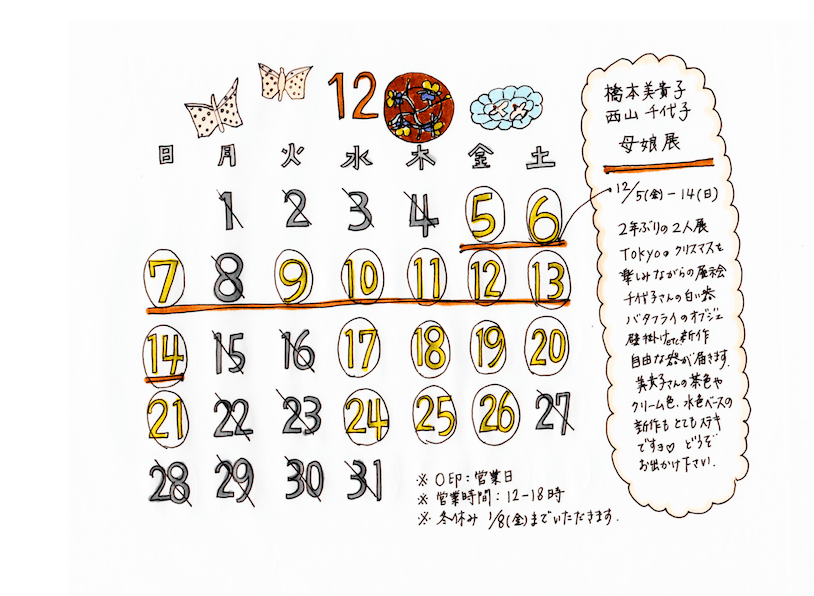 12
日 月 火 水 木 金 土
1 2 3 4 5 6
7 8 9 10 11 12 13
14 15 16 17 18 19 20
21 22 23 24 25 26 27
28 29 30 31
※ ○印:営業日
※ 営業時間:12-18時
※ 冬休み 1/8(金)までいただきます.
橋本美貴子
西山 千代子
母娘展
12/5(金)-14(日)
2年ぶりの2人展
TOKYOの クリスマスを
楽しみながらの展示会
千代子さんの白い器
バタフライのオブジェ
壁掛けetc新作
自由な器が届きます.
美貴子さんの茶色や
クリーム色、水色ベースの
新作も とてもステキ
ですョ♡ どうぞ
お出かけ下さい.